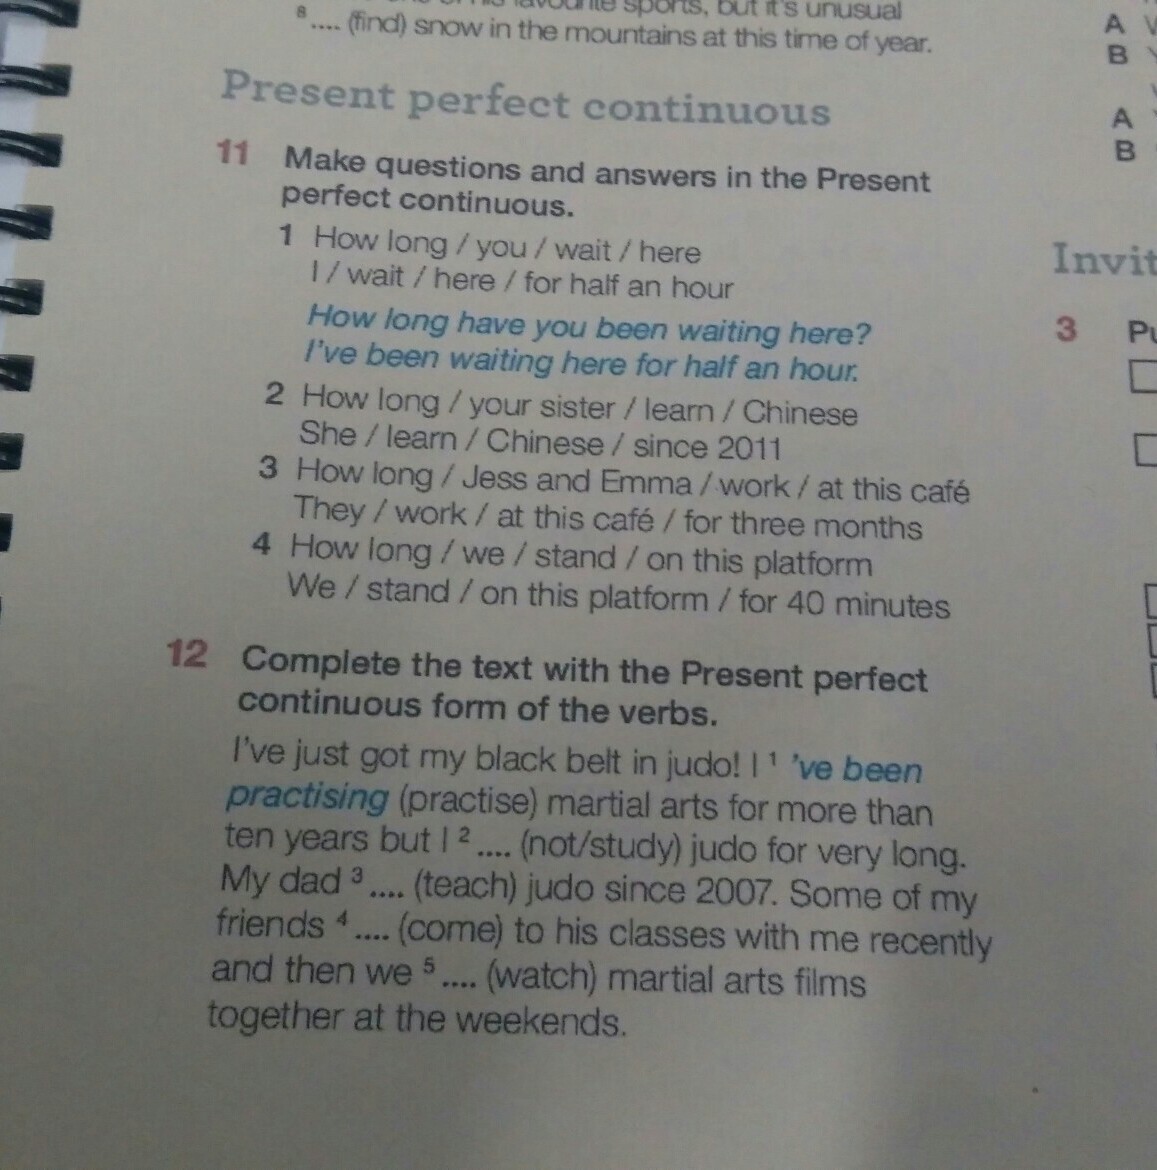 sports, but it's unusual
8 .... (find) snow in the mountains at this time of year.
Present perfect continuous
11 Make questions and answers in the Present
perfect continuous.
1 How long / you / wait / here
I / wait / here / for half an hour
How long have you been waiting here?
I've been waiting here for half an hour.
2 How long / your sister / learn / Chinese
She / learn / Chinese / since 2011
3 How long / Jess and Emma / work / at this café
They / work / at this café / for three months
4 How long / we / stand / on this platform
We / stand / on this platform / for 40 minutes
12 Complete the text with the Present perfect
continuous form of the verbs.
I've just got my black belt in judo! I 1 've been
practising (practise) martial arts for more than
ten years but I 2 .... (not/study) judo for very long.
My dad 3 .... (teach) judo since 2007. Some of my
friends 4 .... (come) to his classes with me recently
and then we 5 .... (watch) martial arts films
together at the weekends.
A
B
A
B
Invit
3 Pu